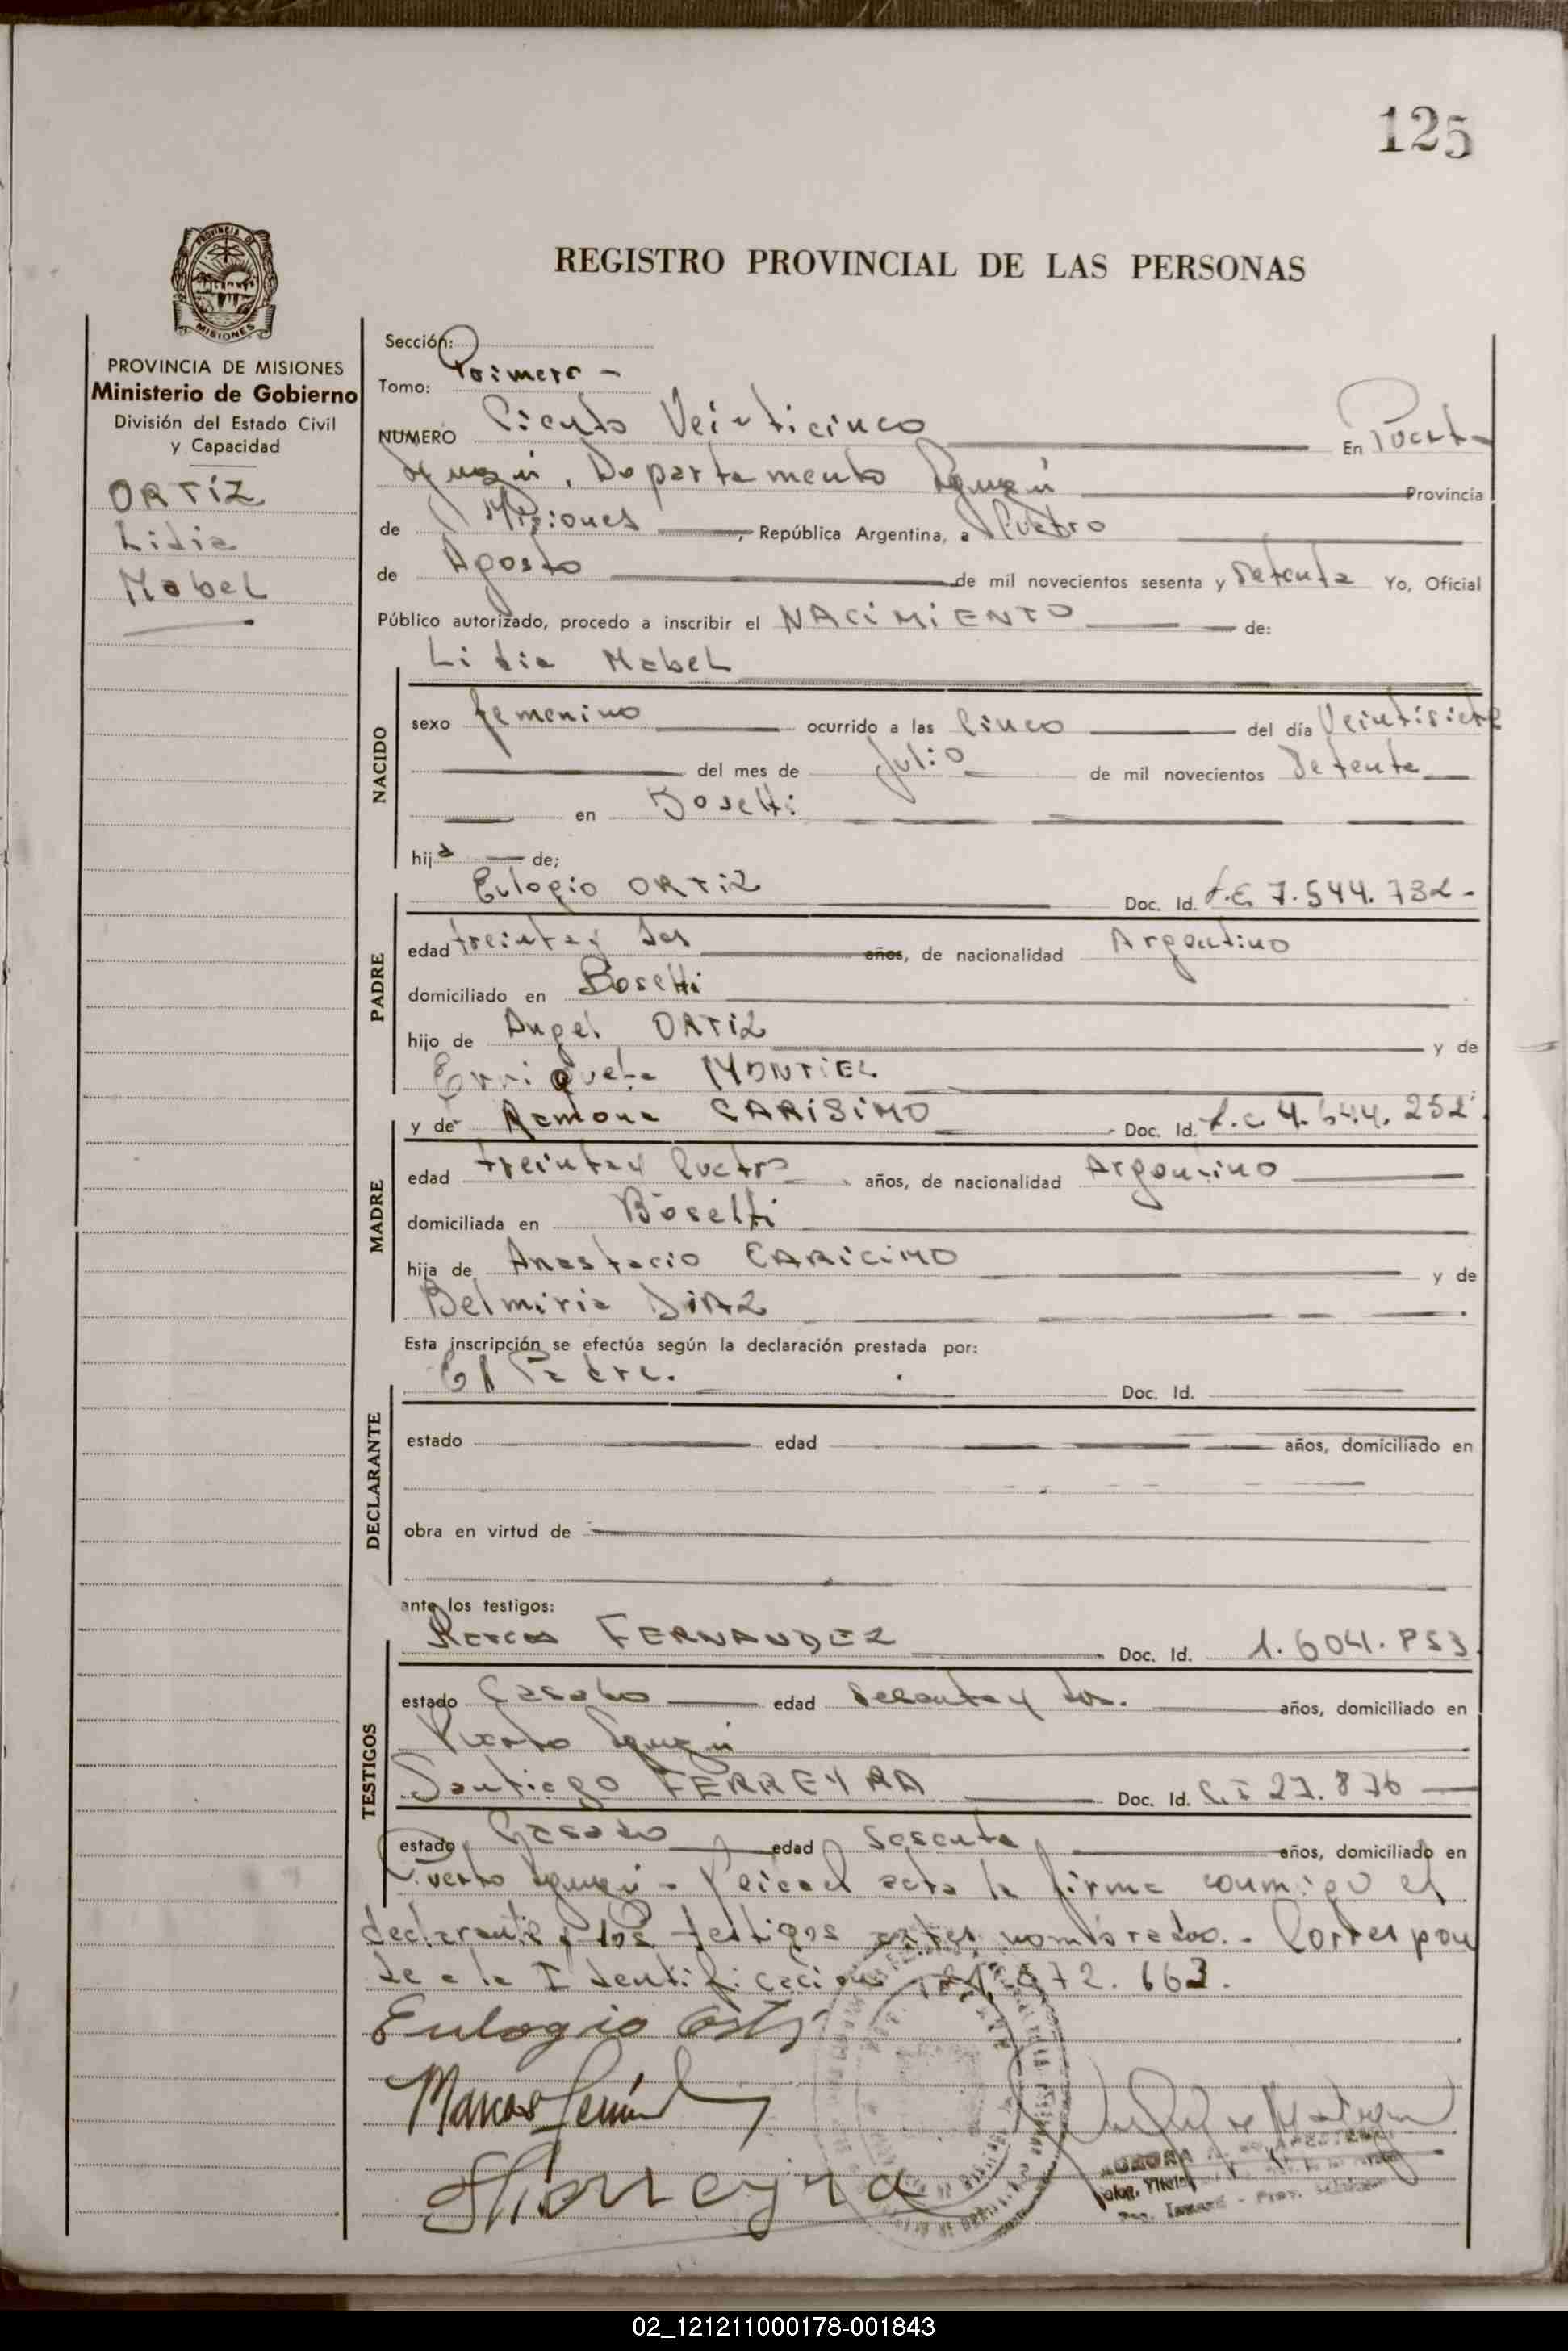 125
PROVINCIA DE
MISIONES
REGISTRO PROVINCIAL DE LAS PERSONAS
PROVINCIA DE MISIONES
Ministerio de Gobierno
División del Estado Civil
y Capacidad
ORTÍZ
Lidia
Mabel
Sección:
Tomo: Primero -
NUMERO Ciento Veinticinco En Puerto
Iguazú, Departamento Iguazú Provincia
de Misiones, República Argentina, a Cuatro
de Agosto de mil novecientos sesenta y Setenta Yo, Oficial
Público autorizado, procedo a inscribir el NACIMIENTO de:
Lidia Mabel
NACIDO
sexo femenino ocurrido a las Cinco del día Veintisiete
del mes de Julio de mil novecientos Setenta
en Bosetti
hija de;
PADRE
Eulogio ORTIZ Doc. Id. L.E 7.544.732-
edad treinta y años, de nacionalidad Argentino
domiciliado en Bosetti
hijo de Angel ORTIZ y de
Enriqueta MONTIEL
MADRE
y de Ramona CARISIMO Doc. Id. L.C 4.644.252
edad treinta y Cuatro años, de nacionalidad Argentino
domiciliada en Bosetti
hija de Anastacio CARICIMO y de
Belmiria DIAZ
Esta inscripción se efectúa según la declaración prestada por:
DECLARANTE
El Padre. Doc. Id.
estado edad años, domiciliado en
obra en virtud de
ante los testigos:
TESTIGOS
Marcos FERNANDEZ Doc. Id. 1.604.
estado Casado edad años, domiciliado en
Puerto Iguazú
Santiago FERREYRA Doc. Id. C.I 27.876
estado Casado edad Sesenta años, domiciliado en
Puerto Iguazú - Leida el acta la firma conmigo el
declarante y los testigos antes nombrados. - Correspon
de a la Identificación 663.
Eulogio Ortiz
Marcos
Ferreyra
02_121211000178-001843